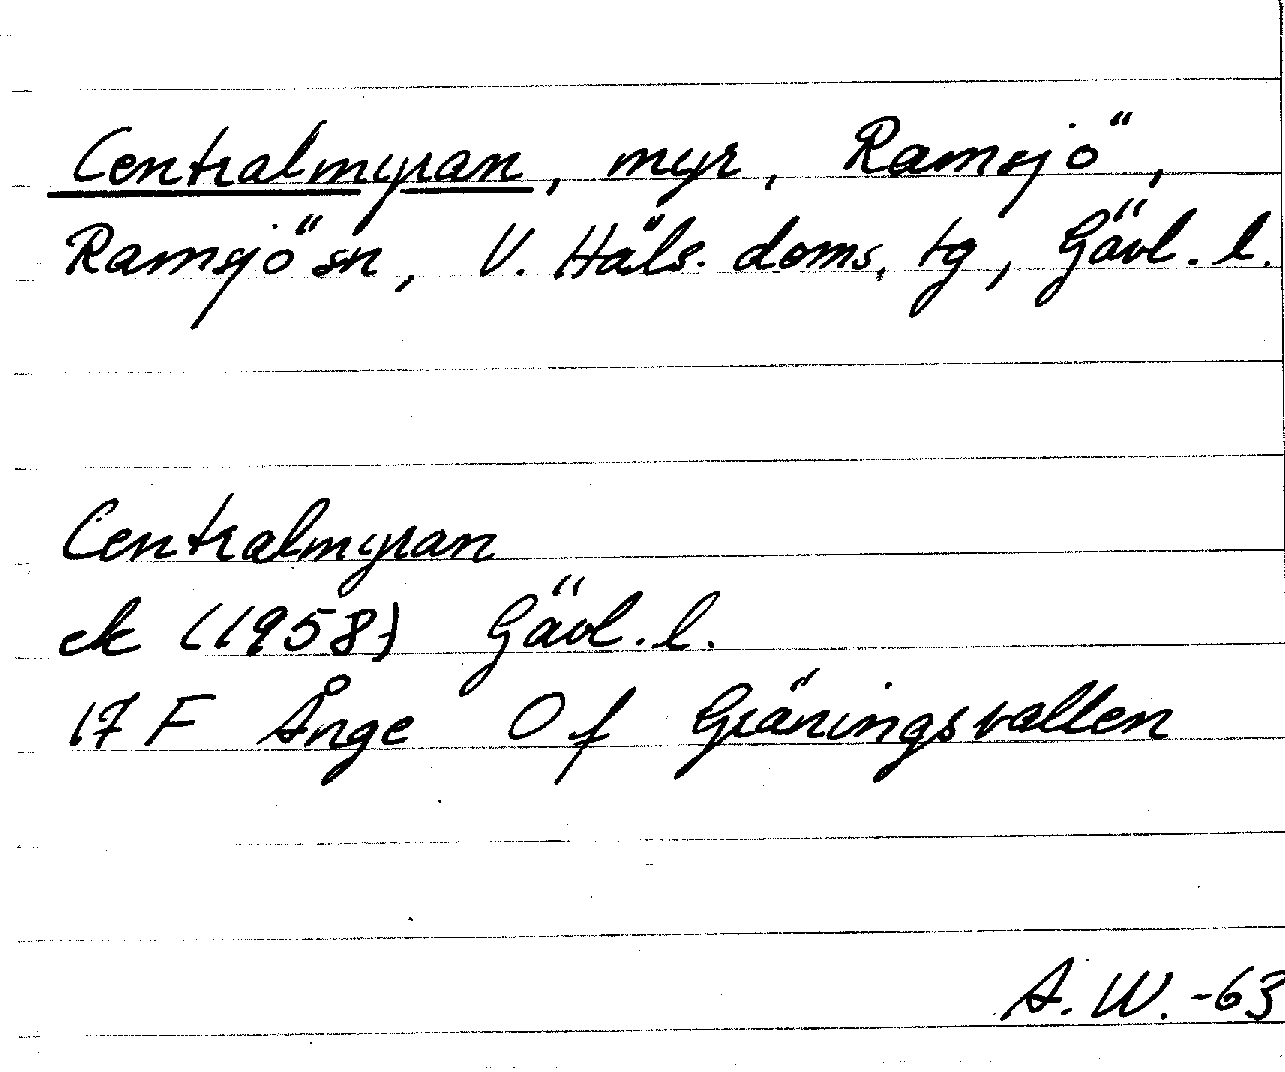 Centralmyran, myr, Ramsjö,
Ramsjö sn, V. Häls. doms. tg, Gävl. l.
Centralmyran
ek (1958) Gävl. l.
17 F Ånge 0 f Gräningsvallen
A. W. -63